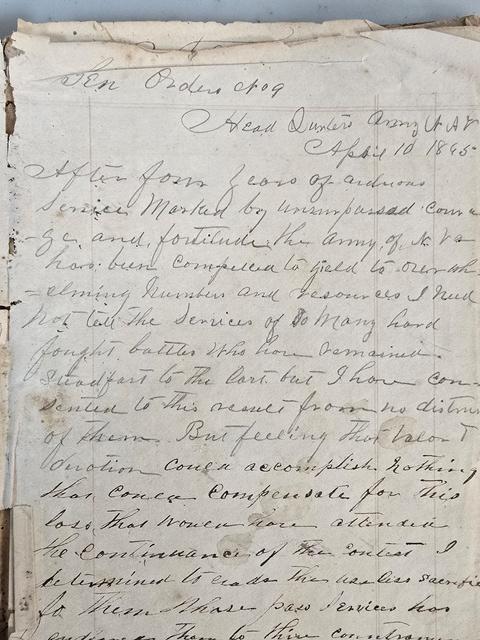 Gen Orders No 9
Head Qurters Army N A V
April 10 1865
After four years of arduous
Service Marked by unsurpassed cour
-ge, and, fortitude, the Army of N. Va
has been compelled to yield to overwh
=elming Number and resources I need
Not tell the Services of So Many hard
fought battles Who have remained
Steadfast to the last but I have con-
sented to this result from no distrus
of them. But feeling that Valor &
devotion could accomplish Nothing
that could compensate for this
loss, that would have attended
the continuance of the contest I
determined to the useless sacrifice
fo them Whose pass Services has
them to there